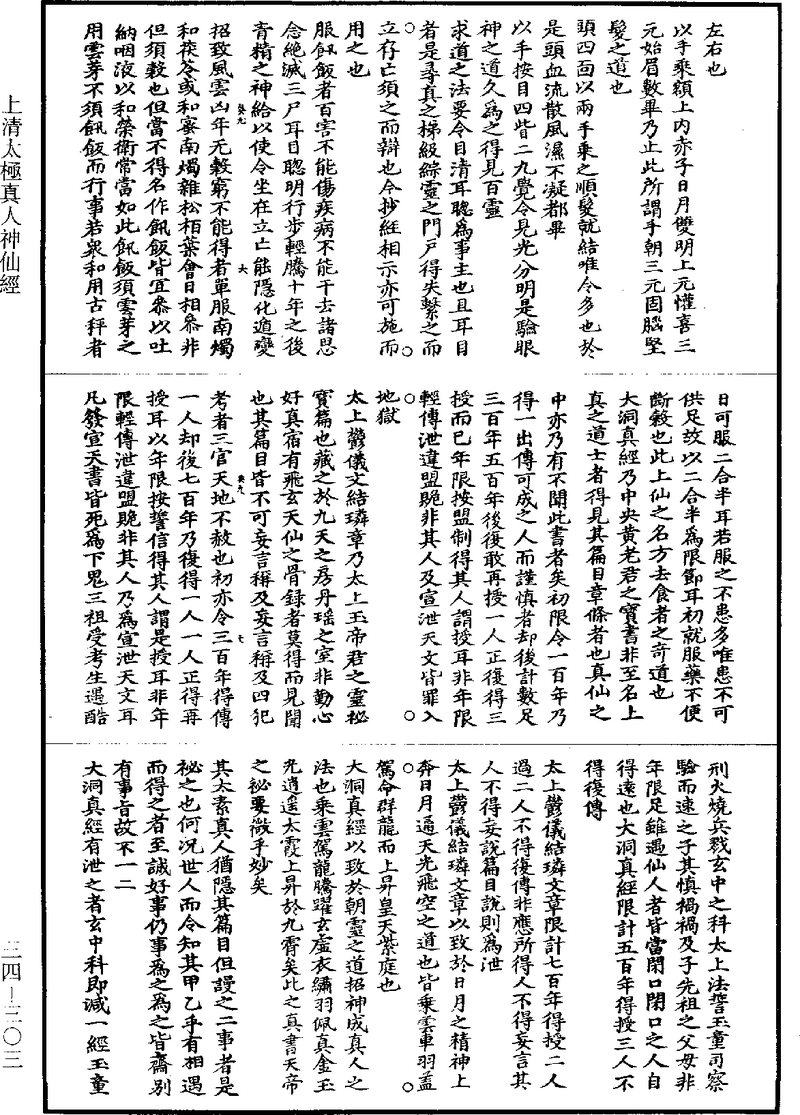 左右也
以手乘額上内赤子日月雙明上元懽喜三
元始眉數畢乃止此所謂手朝三元固腦堅
髮之道也
頭四面以兩手乘之順髮就結唯令多也於
是頭血流散風濕不凝都畢
以手按目四眥二九覺令見光分明是驗眼
神之道久爲之得見百靈
求道之法要令目清耳聰爲事主也且耳目
者是尋真之梯級綜靈之門戶得失繫之而
立存亡須之而辯也今抄經相示亦可施而
用之也
服䬧飯者百害不能傷疾病不能干去諸思
念絶滅三尸耳目聰明行步輕騰十年之後
青精之神給以使令坐在立亡能隱化遁變
招致風雲凶年无穀窮不能得者單服南燭
和茯苓或和蜜南燭雜松栢葉會日相參非
但須穀也但當不得名作䬧飯皆宜參以吐
納咽液以和榮衛常當如此䬧飯須雲芽之
用雲芽不須䬧飯而行事若衆和用古秤者
日可服二合半耳若服之不患多唯患不可
供足故以二合半爲限節耳初就服藥不便
斷穀也此上仙之名方去食者之奇道也
大洞真經乃中央黃老君之寶書非至名上
真之道士者得見其篇目章條者也真仙之
中亦乃有不聞此書者矣初限令一百年乃
得一出傳可成之人而謹慎者却後計數足
三百年五百年後復敢再授一人正復得三
授而已年限按盟制得其人謂授耳非年限
輕傳泄違盟䝱非其人及宣泄天文皆罪入
地獄
太上鬱儀文結璘章乃太上玉帝君之靈祕
寶篇也藏之於九天之房丹瑶之室非勤心
好真宿有飛玄天仙之骨録者莫得而見聞
也其篇目皆不可妄言稱及妄言稱及四犯
考者三官天地不赦也初亦令三百年得傳
一人却後七百年乃復得一人一人正得再
授耳以年限按誓信得其人謂是授耳非年
限輕傳泄違盟䝱非其人乃爲宣泄天文耳
凡發宣天書皆死爲下鬼三祖受考生遇酷
刑火燒兵戮玄中之科太上法誓玉童司察
驗而速之子其慎禍禍及子先祖之父母非
年限足雖遇仙人者皆當閉口閉口之人自
得遠也大洞真經限計五百年得授三人不
得復傳
太上鬱儀結璘文章限計七百年得授二人
過二人不得復傳非應所得人不得妄言其
人不得妄說篇目說則爲泄
太上鬱儀結璘文章以致於日月之精神上
奔日月通天光飛空之道也皆乘雲車羽蓋
駕命群龍而上昇皇天紫庭也
大洞真經以致於朝靈之道招神成真人之
法也乘雲駕龍騰躍玄虛衣繡羽佩真金玉
光逍遥太霞上昇於九霄矣此之真書天帝
之祕要微乎妙矣
其太素真人猶隱其篇目但謾之二事者是
祕之也何況世人而令知其甲乙乎有相遇
而得之者至誠好事仍事爲之爲之皆齋别
有事旨故不一二
大洞真經有泄之者玄中科即減一經玉童
上清太極真人神仙經
三四－三〇三